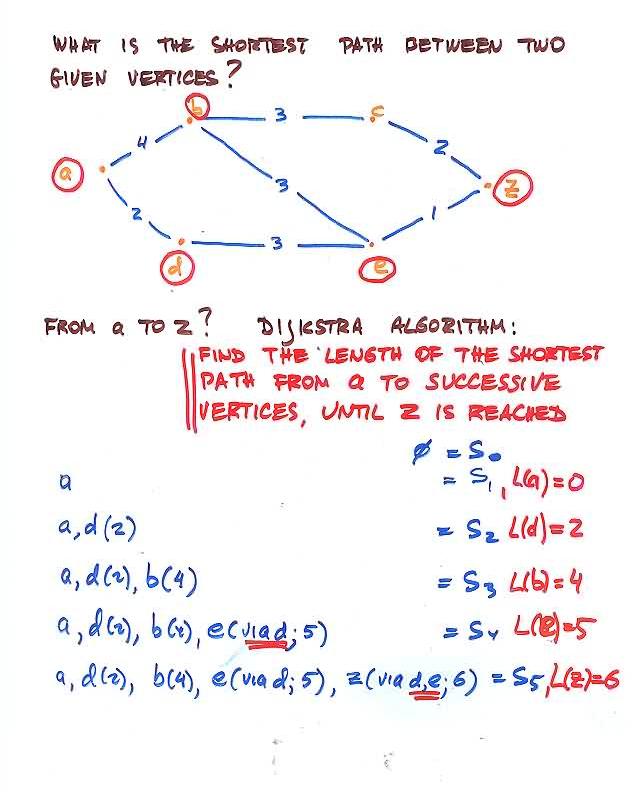 WHAT IS THE SHORTEST PATH BETWEEN TWO
GIVEN VERTICES?
b 3 c
4 2
a 3 z
2 1
d 3 e
FROM a TO Z? DIJKSTRA ALGORITHM:
FIND THE LENGTH OF THE SHORTEST
PATH FROM a TO SUCCESSIVE
VERTICES, UNTIL Z IS REACHED
ø = S₀
a = S₁, L(a)=0
a, d(2) = S₂ L(d)=2
a, d(2), b(4) = S₃ L(b)=4
a, d(2), b(4), e(via d; 5) = S₄ L(e)=5
a, d(2), b(4), e(via d; 5), z(via d,e; 6) = S₅, L(z)=6